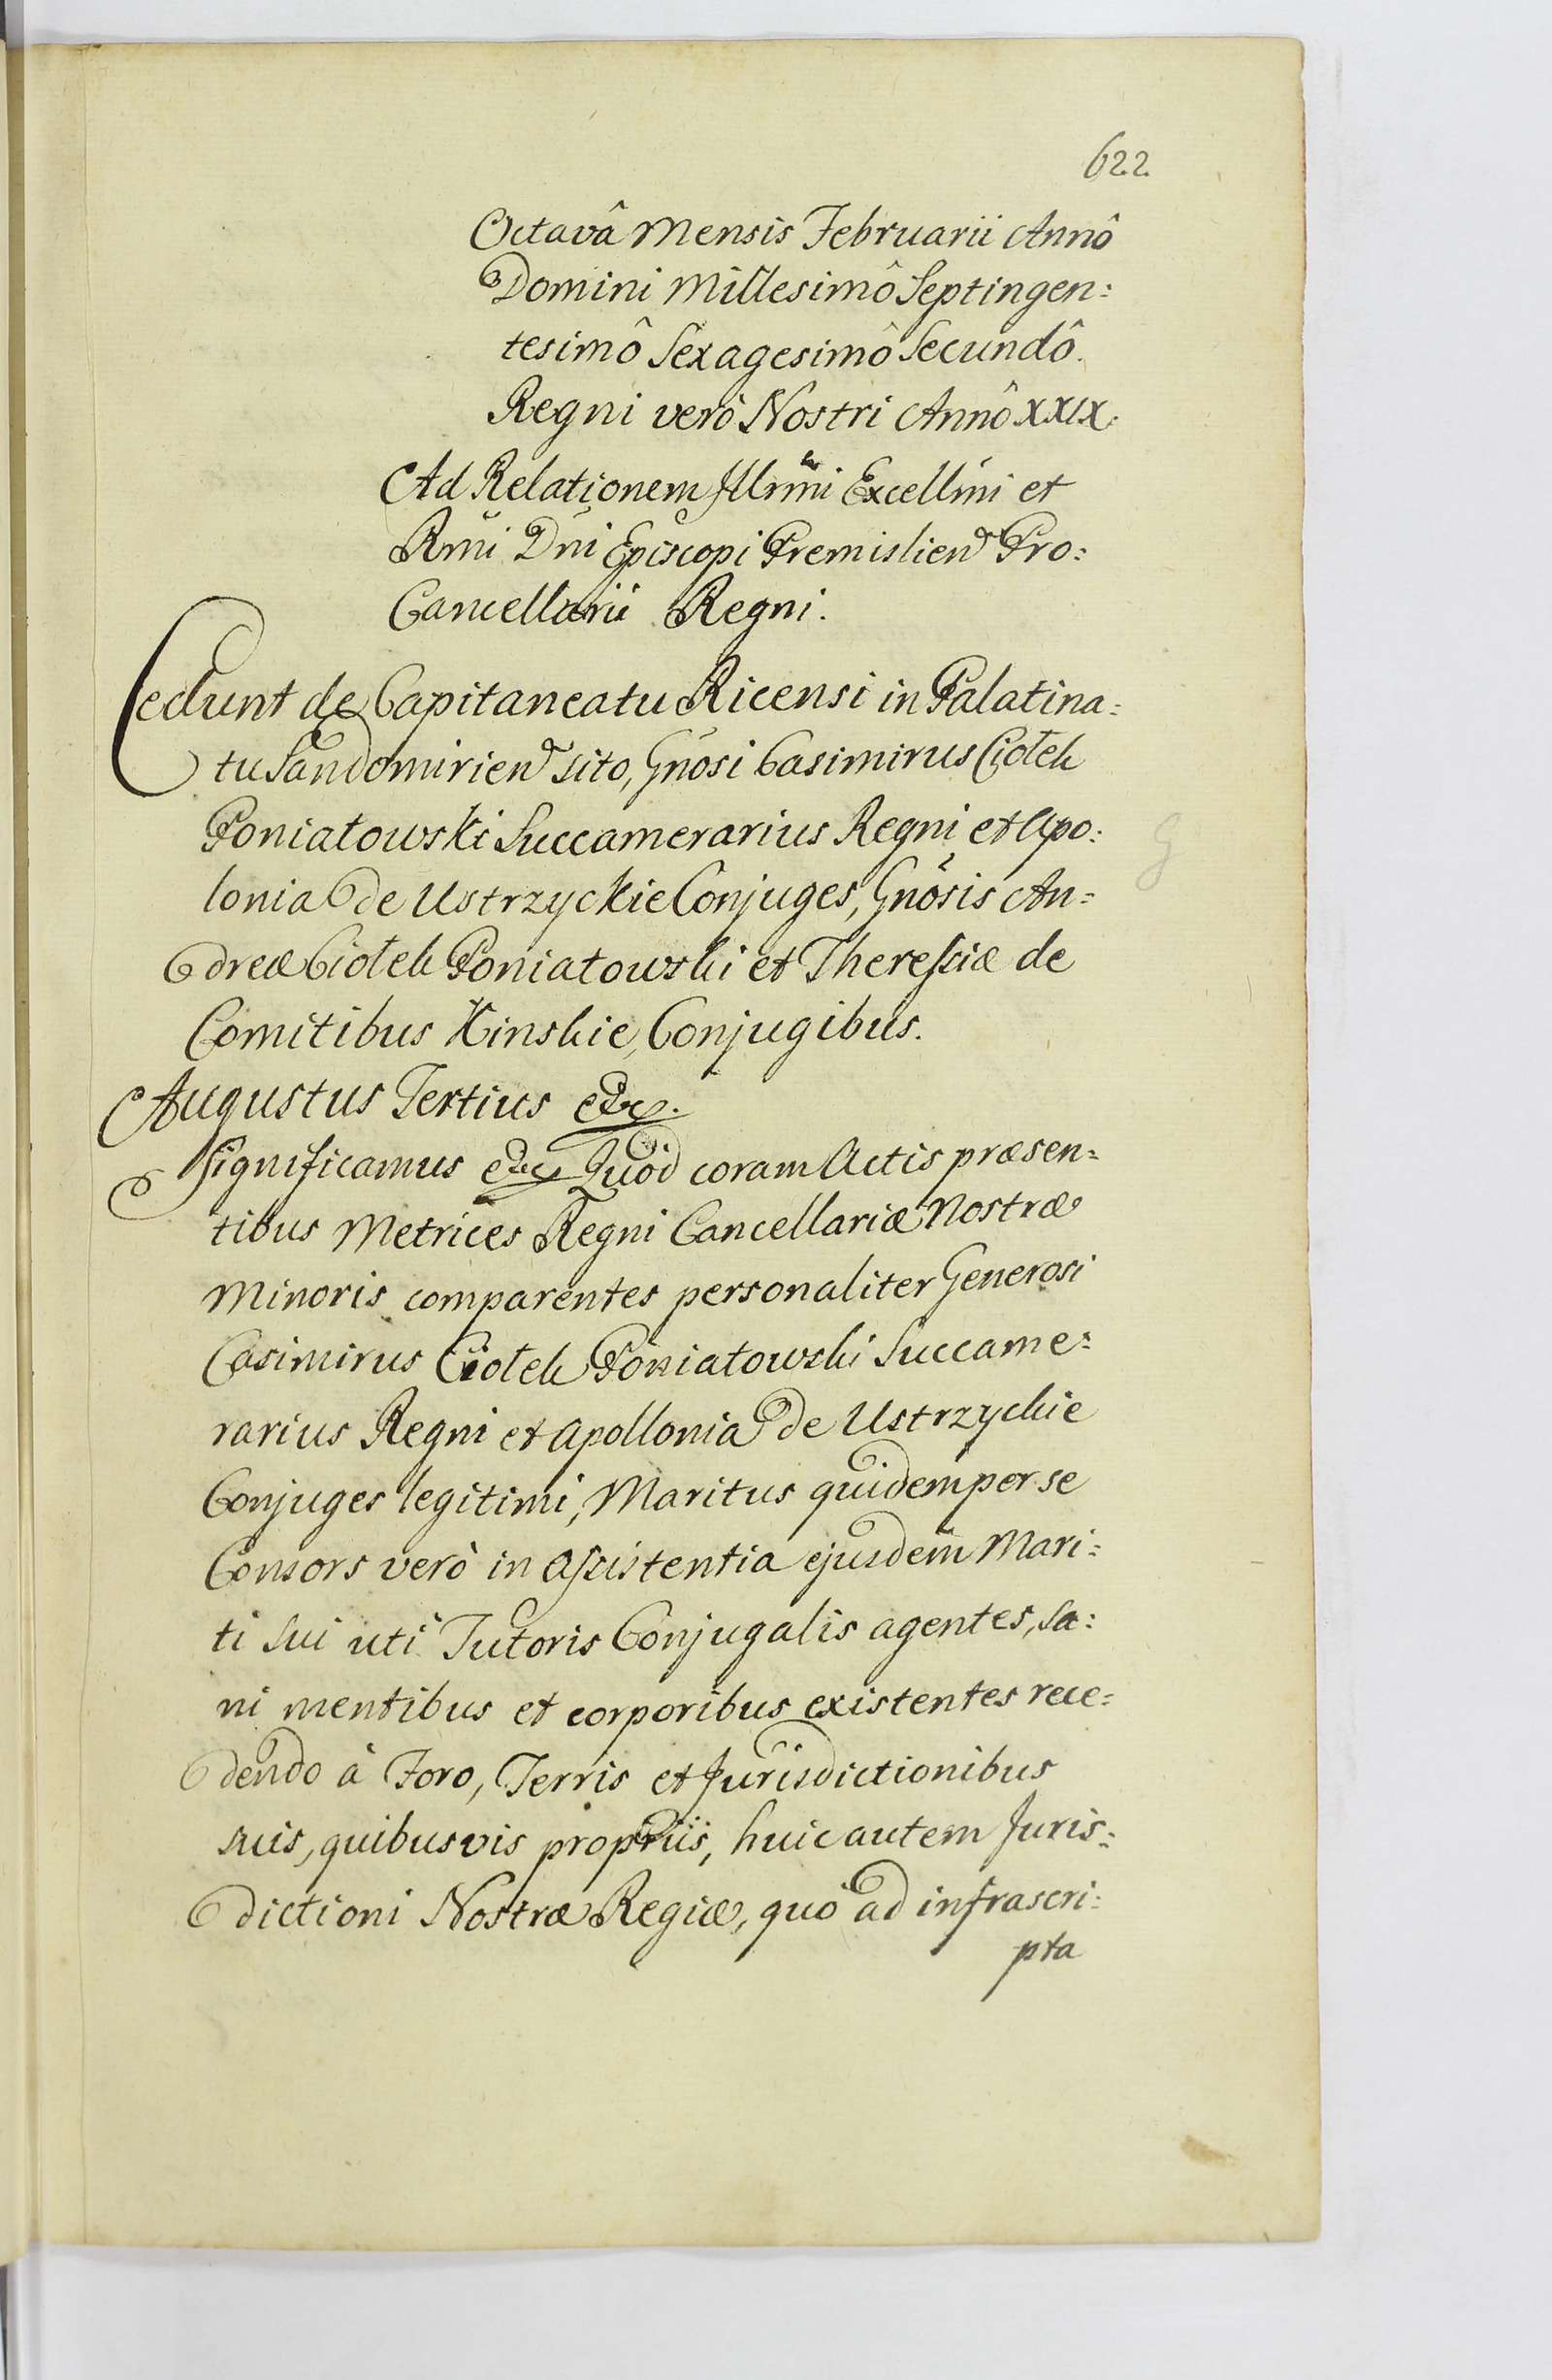 622
Octavâ Mensis Februarii Annô
Domini Millesimô Septingen:
tesimô Sexagesimô Secundô.
Regni verò Nostri Annô XXIX.
Ad Relationem Illrmi Excellmi et
Rmi Dni Episcopi Premislien Pro:
Cancellarii Regni.
Cedunt de Capitaneatu Ricensi in Palatina:
tu Sandomirien sito, Gnosi Casimirus Ciołek
Poniatowski Succamerarius Regni et Apo:
lonia de Ustrzyckie Conjuges, Gnosis An=
dreæ Ciołek Poniatowski et Theresiæ de
Comitibus Kinskie, Conjugibus.
Augustus Tertius etc.
Significamus etc Quod coram Actis præsen=
tibus Metrices Regni Cancellariæ Nostræ
Minoris comparentes personaliter Generosi
Casimirus Ciołek Poniatowski Succame=
rarius Regni et Apollonia de Ustrzyckie
Conjuges legitimi, Maritus quidem per se
Consors verò in assistentia ejusdem Mari:
ti sui uti Tutoris Conjugalis agentes, sa:
ni mentibus et corporibus existentes rece=
dendo à Foro, Terris et Jurisdictionibus
suis, quibusvis propriis, huic autem Juris:
dictioni Nostræ Regiæ, quò ad infrascri:
pta